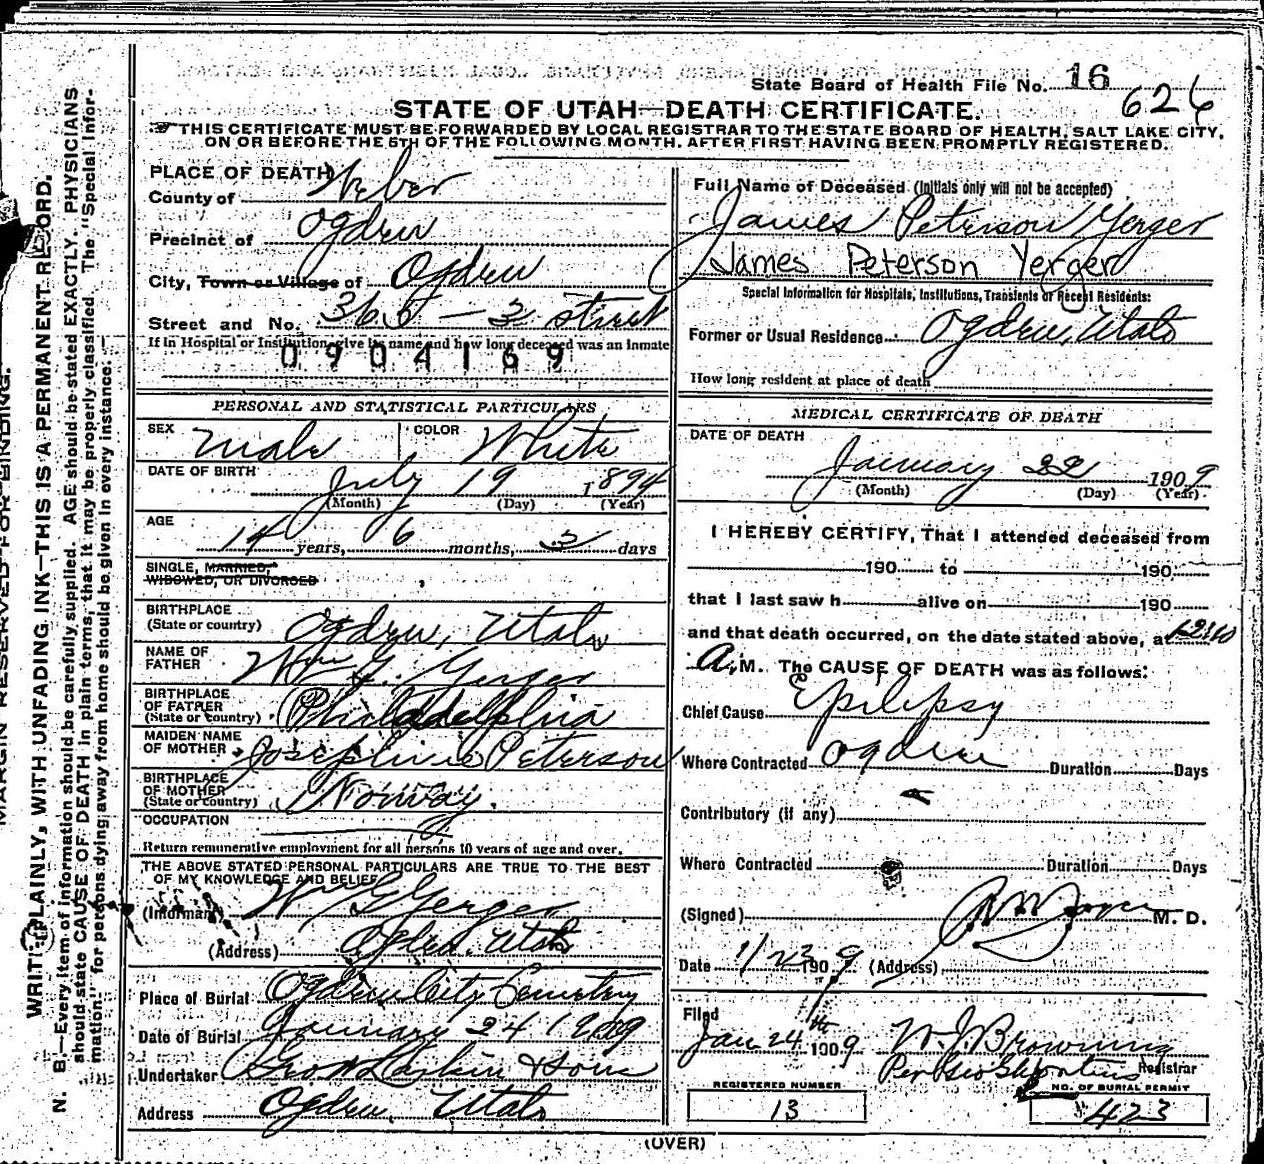 State Board of Health File No. 16
626
STATE OF UTAH—DEATH CERTIFICATE.
THIS CERTIFICATE MUST BE FORWARDED BY LOCAL REGISTRAR TO THE STATE BOARD OF HEALTH, SALT LAKE CITY,
ON OR BEFORE THE 5TH OF THE FOLLOWING MONTH, AFTER FIRST HAVING BEEN PROMPTLY REGISTERED.
PLACE OF DEATH
County of Weber
Precinct of Ogden
City, Town or Village of Ogden
Street and No. 365 - 3 street
If in Hospital or Institution, give its name and how long deceased was an Inmate
0904169
PERSONAL AND STATISTICAL PARTICULARS
SEX Male COLOR White
DATE OF BIRTH
July 19 1894
(Month) (Day) (Year)
AGE
14 years, 6 months, 3 days
SINGLE, MARRIED,
WIDOWED, OR DIVORCED
BIRTHPLACE
(State or country) Ogden, Utah
NAME OF
FATHER Wm G. Yerger
BIRTHPLACE
OF FATHER
(State or country) Philadelphia
MAIDEN NAME
OF MOTHER Josephine Peterson
BIRTHPLACE
OF MOTHER
(State or country) Norway.
OCCUPATION
Return remunerative employment for all persons 10 years of age and over.
THE ABOVE STATED PERSONAL PARTICULARS ARE TRUE TO THE BEST
OF MY KNOWLEDGE AND BELIEF
(Informant) Wm G Yerger
(Address) Ogden. Utah
Place of Burial Ogden City Cemetery
Date of Burial January 24 1909
Undertaker Geo W Larkin & Sons
Address Ogden Utah
Full Name of Deceased (Initials only will not be accepted)
James Peterson Yerger
James Peterson Yerger
Special Information for Hospitals, Institutions, Transients or Recent Residents:
Former or Usual Residence Ogden, Utah
How long resident at place of death
MEDICAL CERTIFICATE OF DEATH
DATE OF DEATH
January 22 1909
(Month) (Day) (Year)
I HEREBY CERTIFY, That I attended deceased from
190 to 190
that I last saw h alive on 190
and that death occurred, on the date stated above, at 12:10
A.M. The CAUSE OF DEATH was as follows:
Chief Cause Epilepsy
Where Contracted Ogden Duration Days
Contributory (if any)
Where Contracted Duration Days
(Signed) M. D.
Date 1/23 1909 (Address)
Filed
Jan 24th 1909 W. J. Browning
Per Registrar
REGISTERED NUMBER
13
NO. OF BURIAL PERMIT
423
(OVER)
MARGIN RESERVED FOR BINDING.
WRITE PLAINLY, WITH UNFADING INK—THIS IS A PERMANENT RECORD.
N. B.—Every item of information should be carefully supplied. AGE should be stated EXACTLY. PHYSICIANS
should state CAUSE OF DEATH in plain terms, that it may be properly classified. The "Special Infor-
mation" for persons dying away from home should be given in every instance.